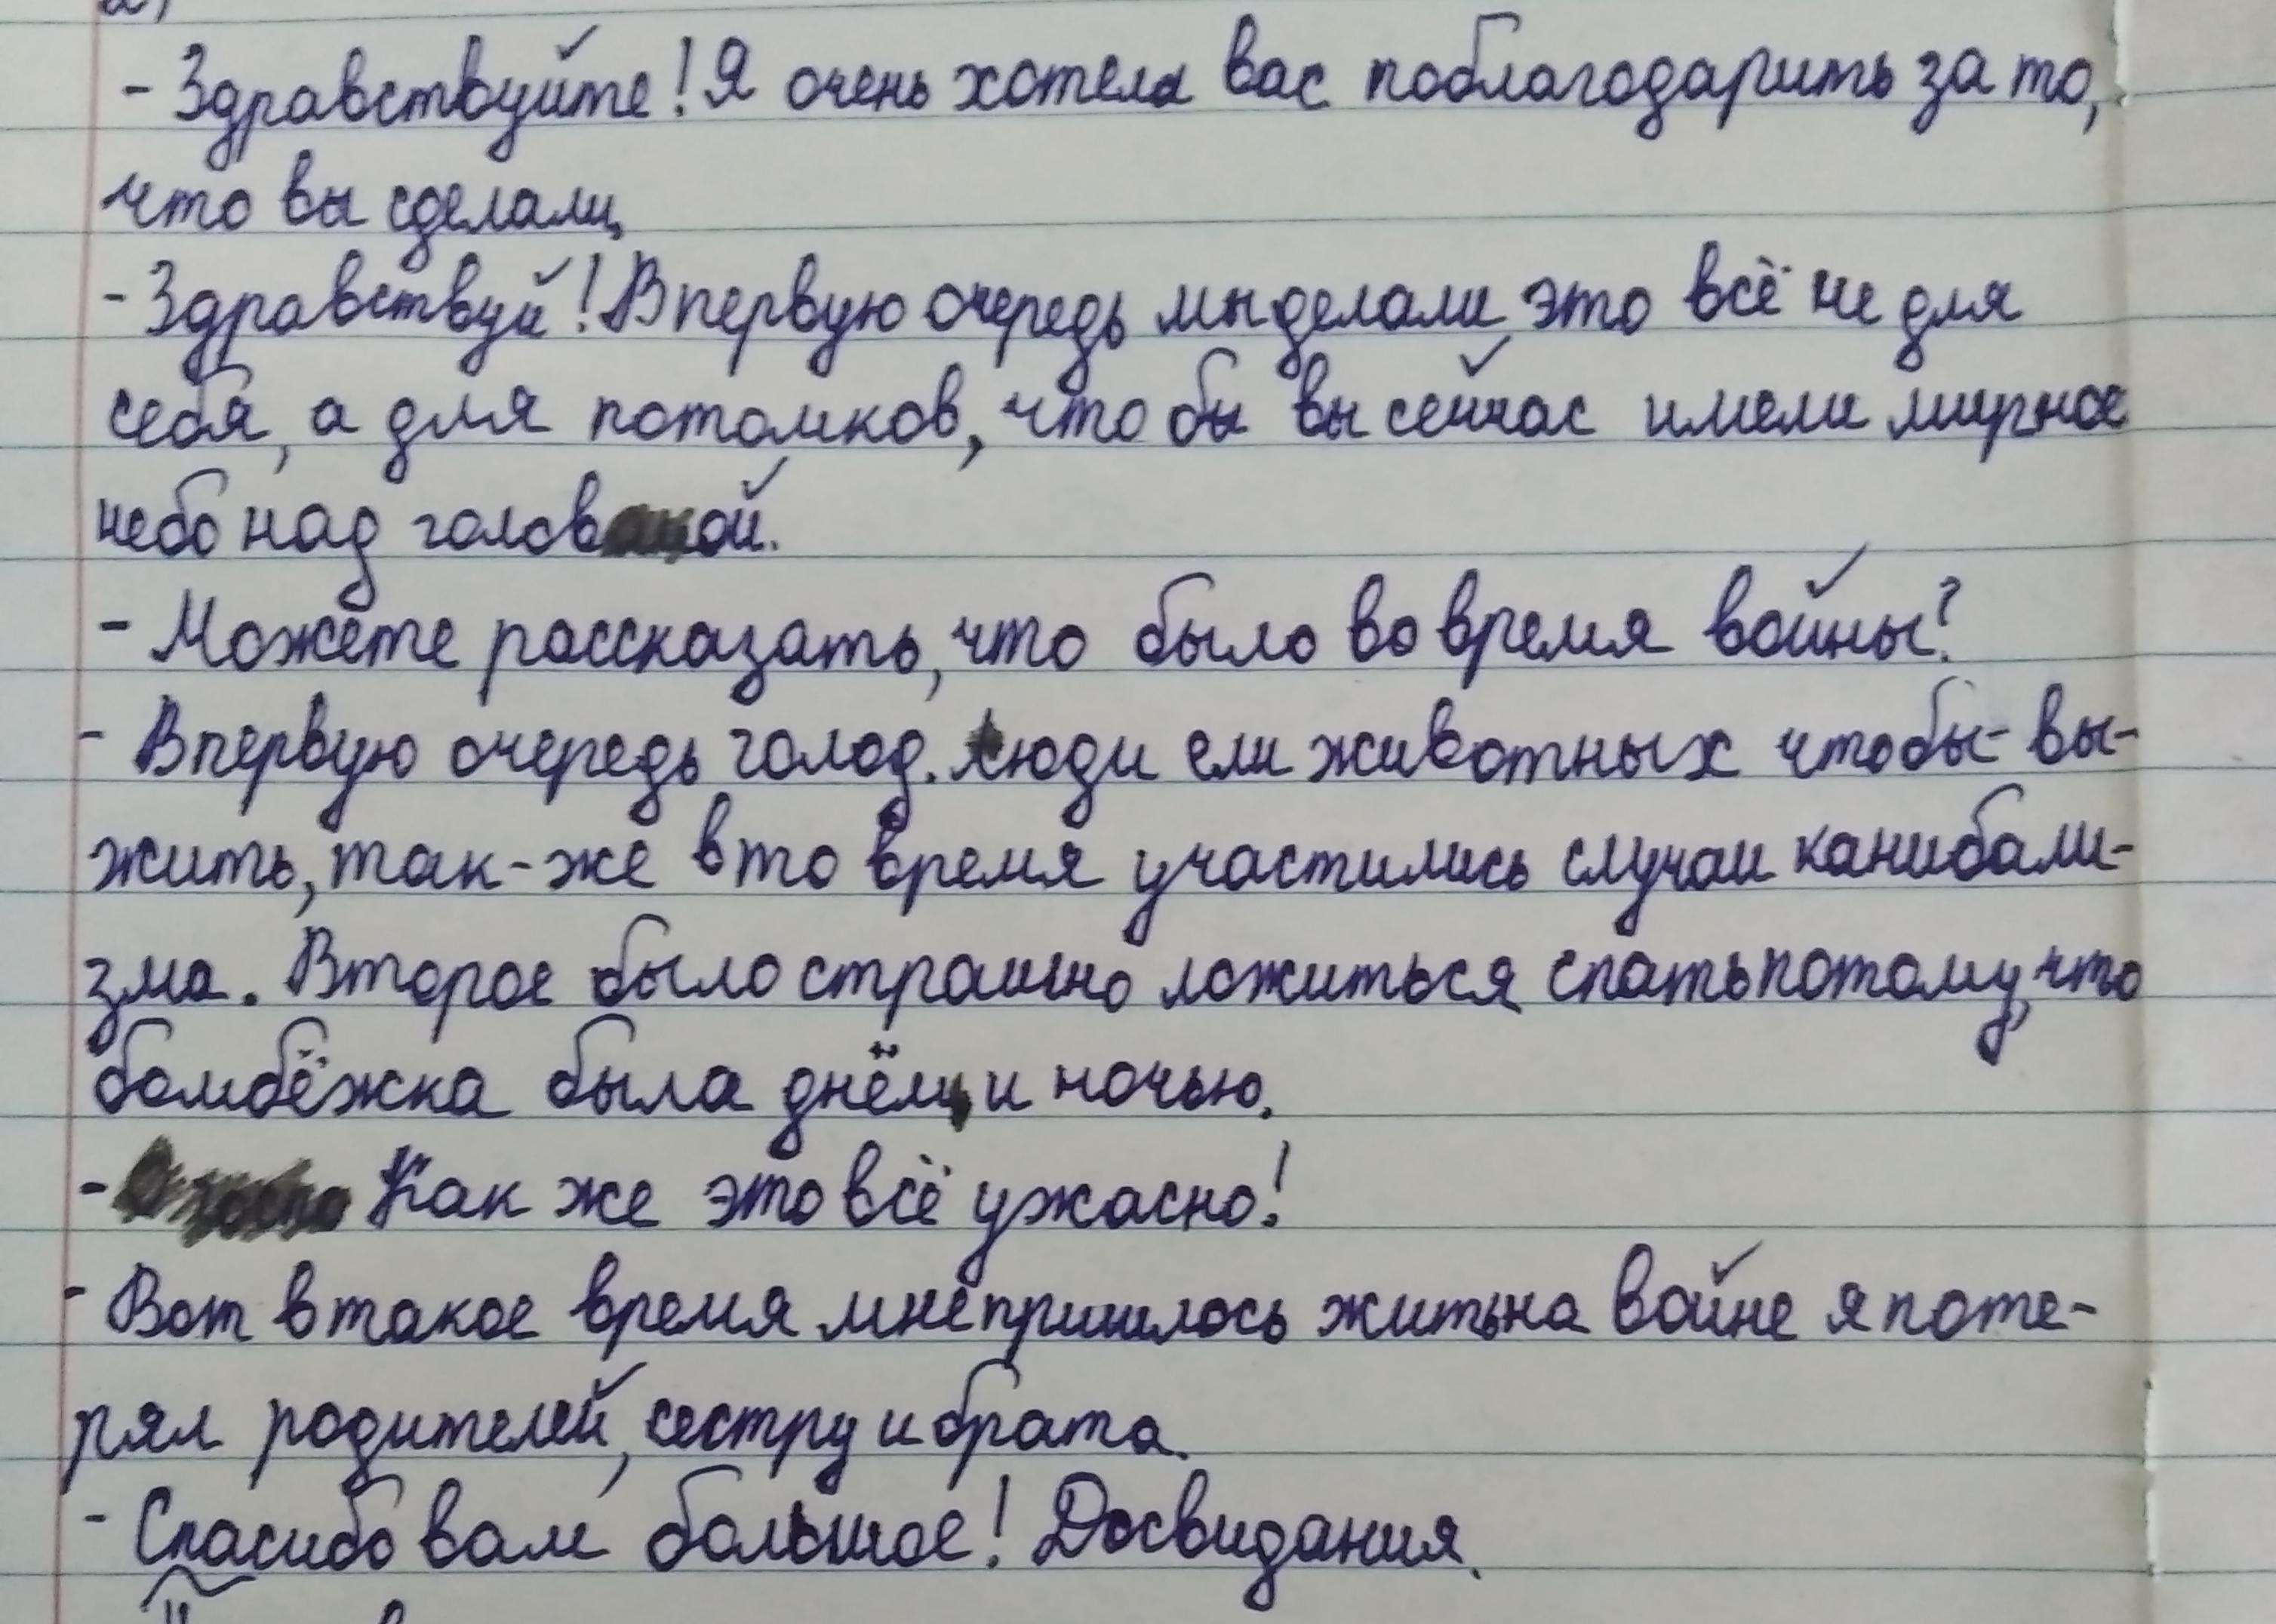 - Здравствуйте! Я очень хотела вас поблагодарить за то,
что вы сделали.
- Здравствуй! В первую очередь мы делали это всё не для
себя, а для потомков, что бы вы сейчас имели мирное
небо над головой.
- Можете рассказать, что было во время войны?
- В первую очередь голод. Люди ели животных чтобы- вы-
жить, так-же в то время участились случаи канибали-
зма. Второе было страшно ложиться спать потому, что
бомбёжка была днём, и ночью.
- Как же это всё ужасно!
- Вот в такое время мне пришлось жить на войне я поте-
рял родителей, сестру и брата.
- Спасибо вам большое! Досвидания.